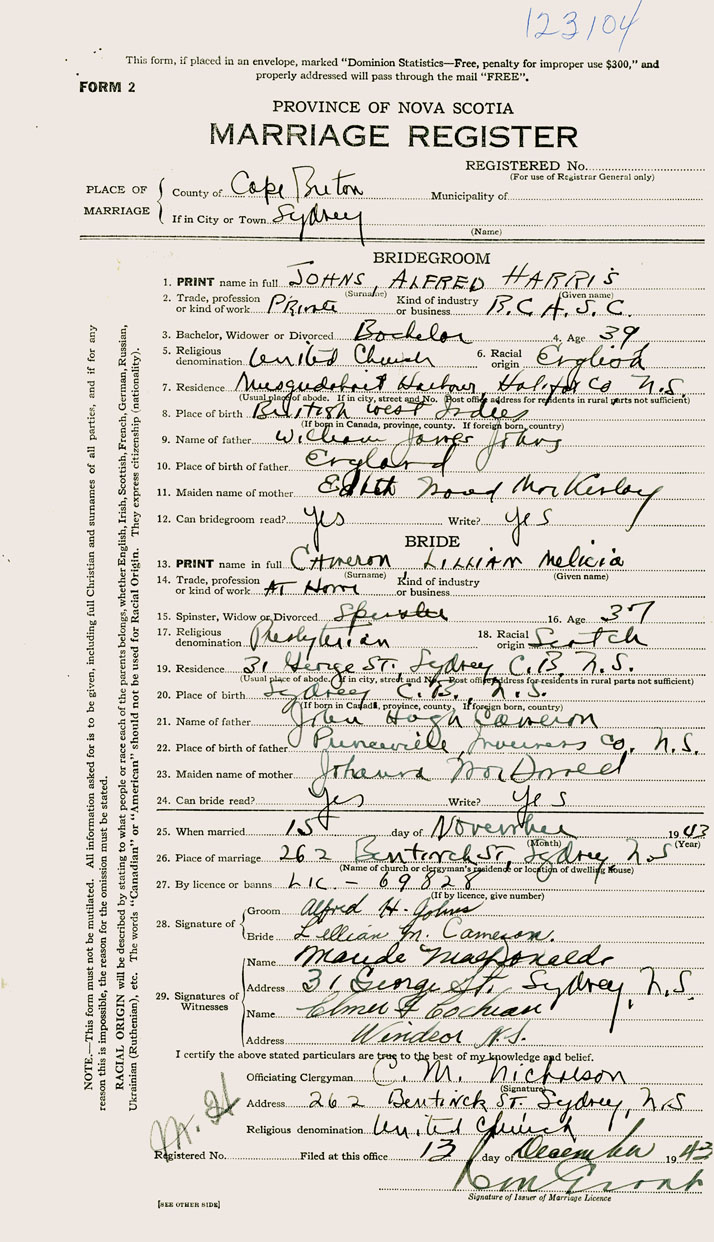 123104
This form, if placed in an envelope, marked "Dominion Statistics—Free, penalty for improper use $300," and
properly addressed will pass through the mail "FREE".
FORM 2
PROVINCE OF NOVA SCOTIA
MARRIAGE REGISTER
REGISTERED No.
(For use of Registrar General only)
PLACE OF MARRIAGE
County of Cape Breton Municipality of
If in City or Town Sydney
(Name)
BRIDEGROOM
1. PRINT name in full JOHNS, ALFRED HARRIS
(Surname) (Given name)
2. Trade, profession or kind of work Private Kind of industry or business R.C.A.S.C.
3. Bachelor, Widower or Divorced Bachelor 4. Age 39
5. Religious denomination United Church 6. Racial origin English
7. Residence Musquodoboit Harbour, Halifax Co N.S.
(Usual place of abode. If in city, street and No. Post office address for residents in rural parts not sufficient)
8. Place of birth British West Indies
(If born in Canada, province, county. If foreign born, country)
9. Name of father William James Johns
10. Place of birth of father England
11. Maiden name of mother Edith
12. Can bridegroom read? Yes Write? Yes
BRIDE
13. PRINT name in full CAMERON, LILLIAN Melicia
(Surname) (Given name)
14. Trade, profession or kind of work At Home Kind of industry or business
15. Spinster, Widow or Divorced Spinster 16. Age 37
17. Religious denomination Presbyterian 18. Racial origin Scotch
19. Residence 31 George St., Sydney C.B. N.S.
(Usual place of abode. If in city, street and No. Post office address for residents in rural parts not sufficient)
20. Place of birth Sydney C.B., N.S.
(If born in Canada, province, county, If foreign born, country)
21. Name of father John Hugh Cameron
22. Place of birth of father Inverness Co. N.S.
23. Maiden name of mother Johanna MacDonald
24. Can bride read? Yes Write? Yes
25. When married 15 day of November 1943
(Month) (Year)
26. Place of marriage 262 Bentinck St, Sydney, N.S
(Name of church or clergyman's residence or location of dwelling house)
27. By licence or banns Lic. - 69828
(If by licence, give number)
28. Signature of
Groom Alfred H. Johns
Bride Lillian M. Cameron.
29. Signatures of Witnesses
Name Maude MacDonald
Address 31 George St. Sydney, N.S.
Name Elmer F Cochran
Address Windsor N.S.
I certify the above stated particulars are true to the best of my knowledge and belief.
Officiating Clergyman C. M. Nicholson
(Signature)
Address 262 Bentinck St. Sydney, N.S
Religious denomination United Church
Registered No. Filed at this office 13 day of December 1943
Signature of Issuer of Marriage Licence
[SEE OTHER SIDE]
NOTE.—This form must not be mutilated. All information asked for is to be given, including full Christian and surnames of all parties, and if for any
reason this is impossible, the reason for the omission must be stated.
RACIAL ORIGIN will be described by stating to what people or race each of the parents belongs, whether English, Irish, Scottish, French, German, Russian,
Ukrainian (Ruthenian), etc. The words "Canadian" or "American" should not be used for Racial Origin. They express citizenship (nationality).